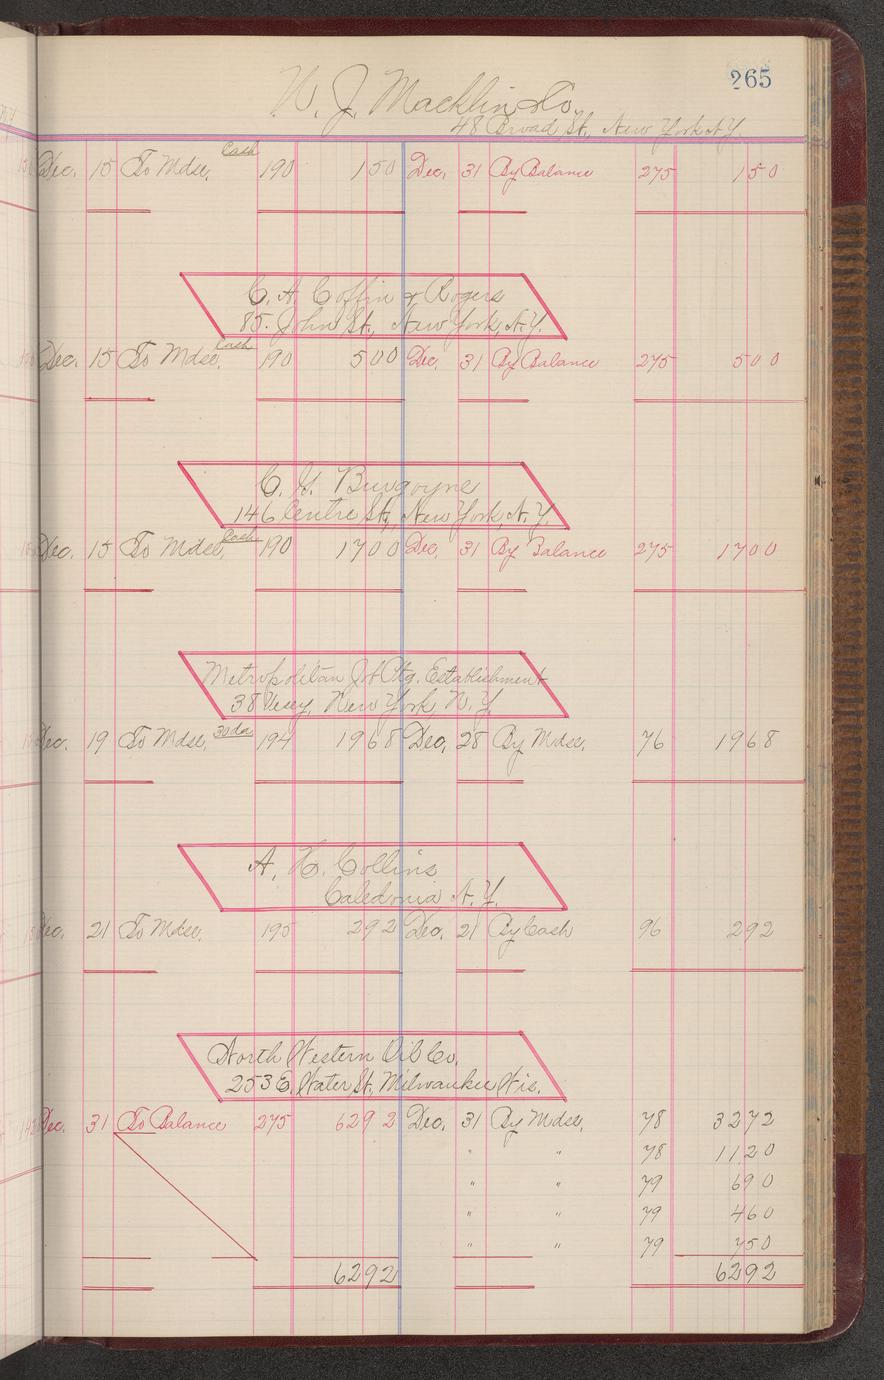 265
W. J. Macklin & Co.
48 Broad St., New York N.Y.
Dec. 15 To Mdse. Cash 190 150 Dec. 31 By Balance 275 150
C. A. Coffin & Rogers
85 John St., New York, N.Y.
Dec. 15 To Mdse. Cash 190 500 Dec. 31 By Balance 275 500
C. G. Burgoyne
146 Centre St., New York, N.Y.
Dec. 15 To Mdse. Cash 190 1700 Dec. 31 By Balance 275 1700
Metropolitan Job Ptg. Establishment
38 Vesey, New York N.Y.
Dec. 19 To Mdse. 30 da 194 1968 Dec. 28 By Mdse. 76 1968
A. H. Collins
Caledonia N.Y.
Dec. 21 To Mdse. 195 292 Dec. 21 By Cash 96 292
North Western Oil Co.
253 E. Water St., Milwaukee Wis.
Dec. 31 To Balance 275 6292 Dec. 31 By Mdse. 78 3272
" " 78 1120
" " 79 690
" " 79 460
" " 79 750
6292 6292